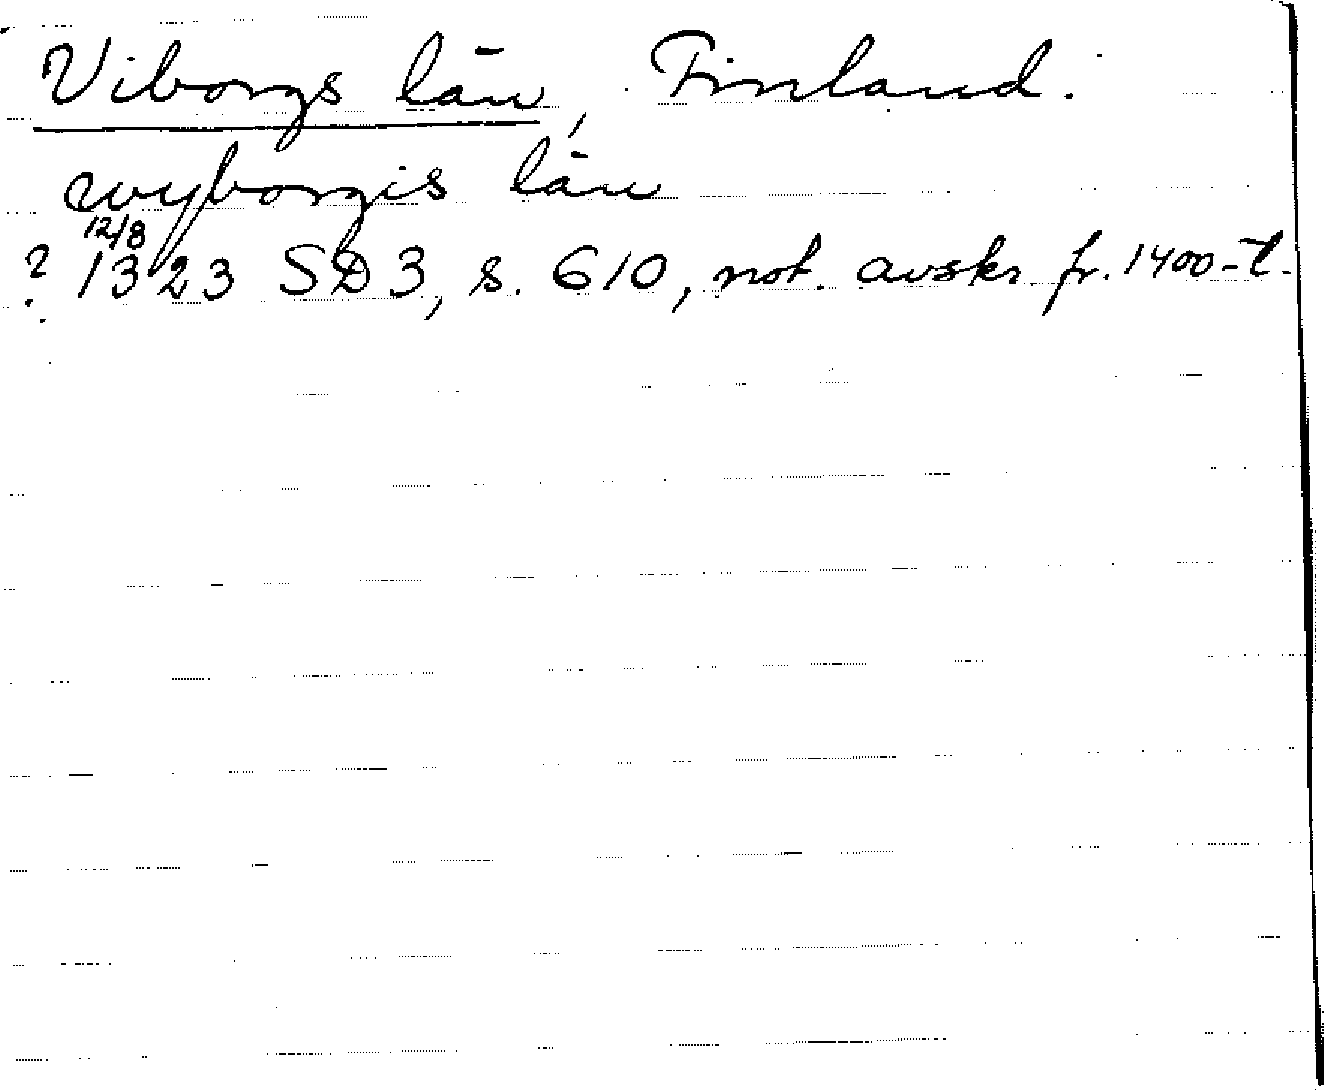 Viborgs län, Finland.
wyborgis län
12/8
? 1323 SD3, s. 610, not. avskr. fr. 1400-t.